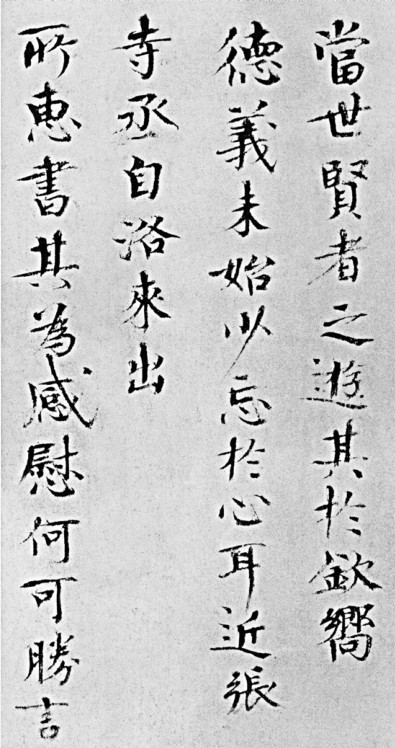 當世賢者之遊其於欽嚮
德義未始以忘於心耳近張
寺丞自洛來出
所惠書其為感慰何可勝言